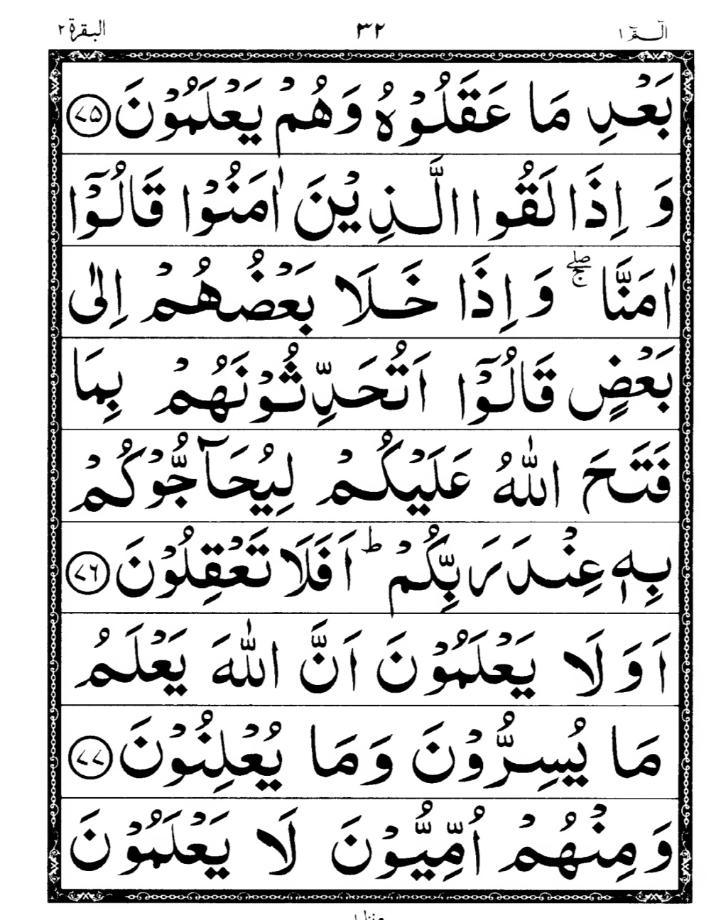 الٓـمّٓ ١ ٣٢ البقرة ٢
بَعْدِ مَا عَقَلُوْهُ وَهُمْ يَعْلَمُوْنَ ﴿۷۵﴾
وَ اِذَا لَقُوا الَّذِيْنَ اٰمَنُوْا قَالُوْٓا
اٰمَنَّا ۖۚ وَ اِذَا خَلَا بَعْضُهُمْ اِلٰى
بَعْضٍ قَالُوْٓا اَتُحَدِّثُوْنَهُمْ بِمَا
فَتَحَ اللّٰهُ عَلَيْكُمْ لِيُحَآجُّوْكُمْ
بِهٖ عِنْدَ رَبِّكُمْ ؕ اَفَلَا تَعْقِلُوْنَ ﴿۷۶﴾
اَوَ لَا يَعْلَمُوْنَ اَنَّ اللّٰهَ يَعْلَمُ
مَا يُسِرُّوْنَ وَمَا يُعْلِنُوْنَ ﴿۷۷﴾
وَمِنْهُمْ اُمِّيُّوْنَ لَا يَعْلَمُوْنَ